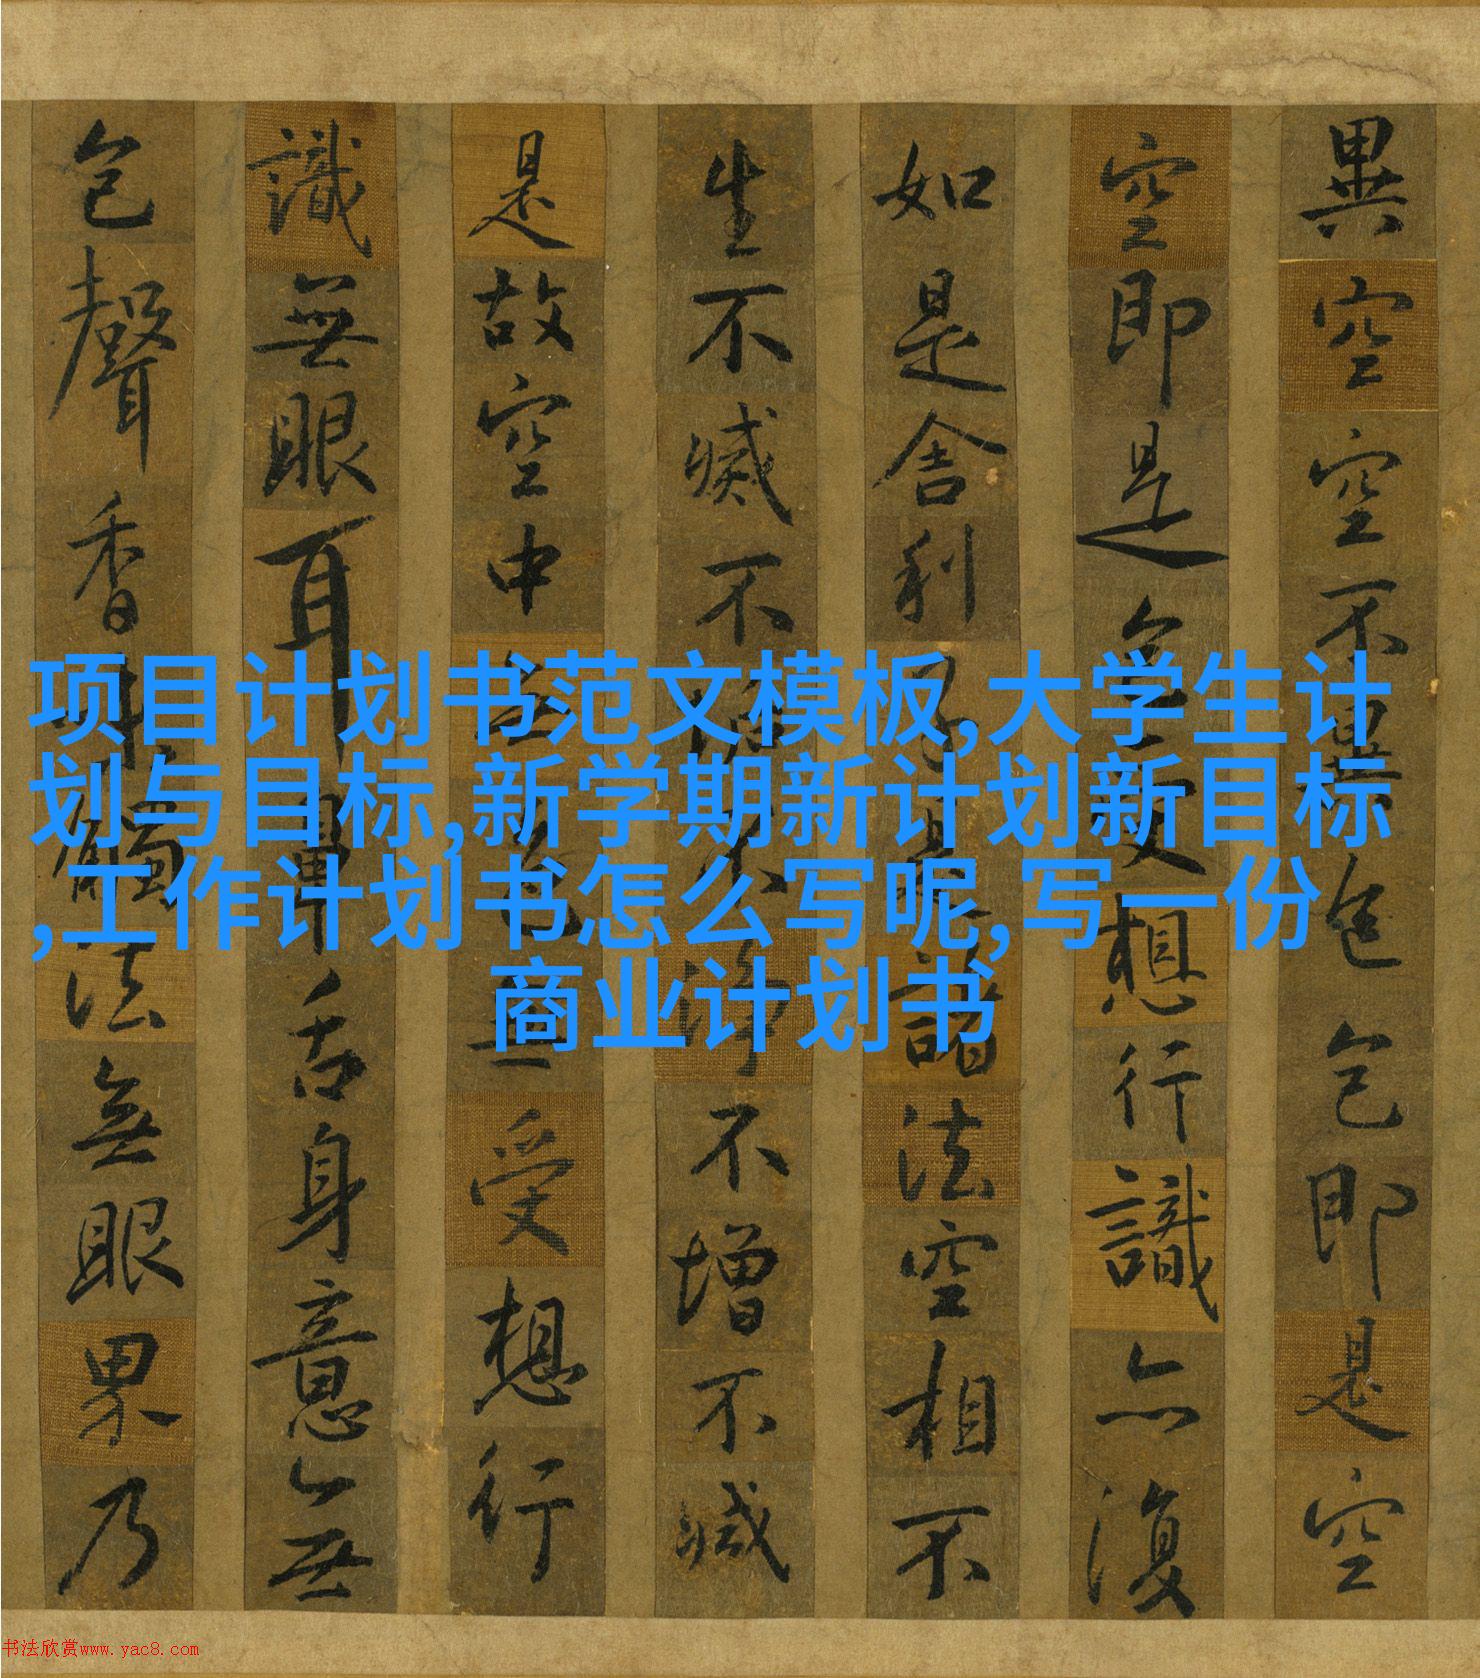 異空空不異色色即是空
空即是色受想行識亦復
如是舍利子是諸法空相不
生不滅不垢不淨不增不減
是故空中無色無受想行
識無眼耳鼻舌身意無
色聲香味觸法無眼界乃
项目计划书范文模板,大学生计
划与目标,新学期新计划新目标
,工作计划书怎么写呢,写一份
商业计划书
书法欣赏www.yac8.com